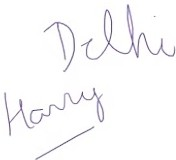 Delhi
Harry